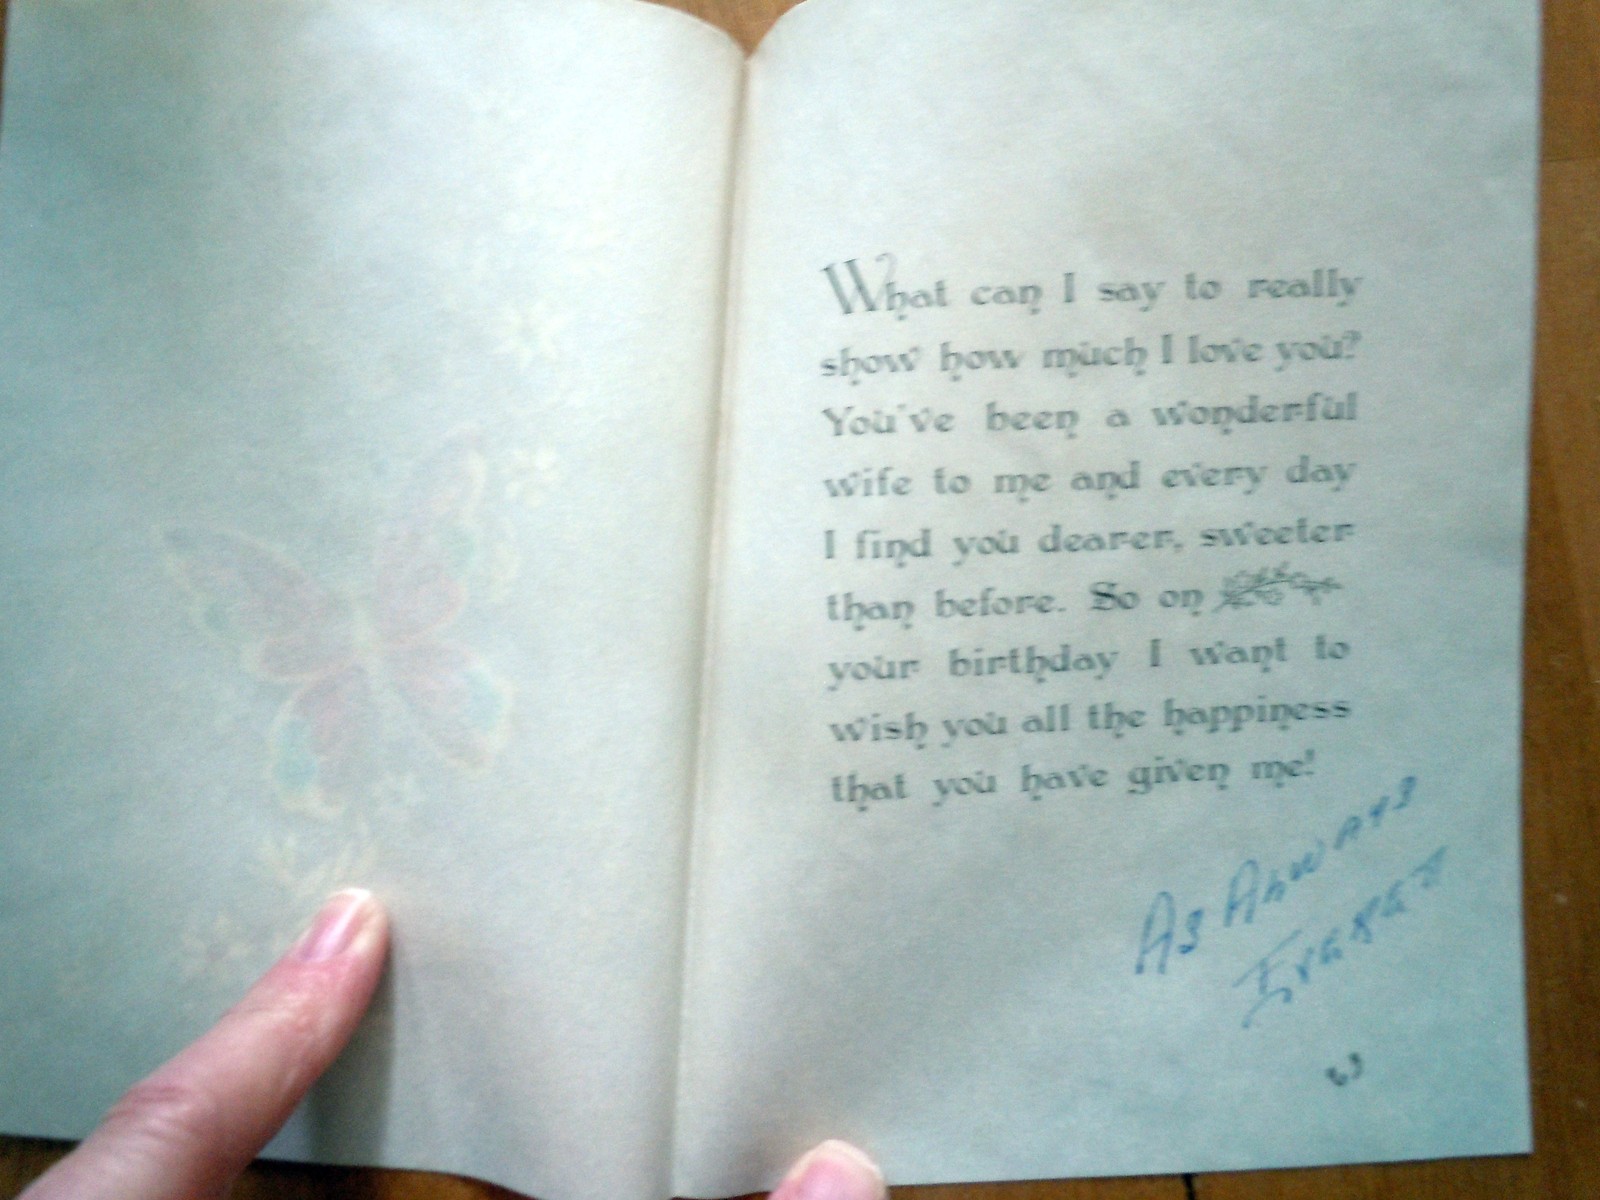 What can I say to really
show how much I love you?
You've been a wonderful
wife to me and every day
I find you dearer, sweeter
than before. So on
your birthday I want to
wish you all the happiness
that you have given me!
As Always
Everett
63